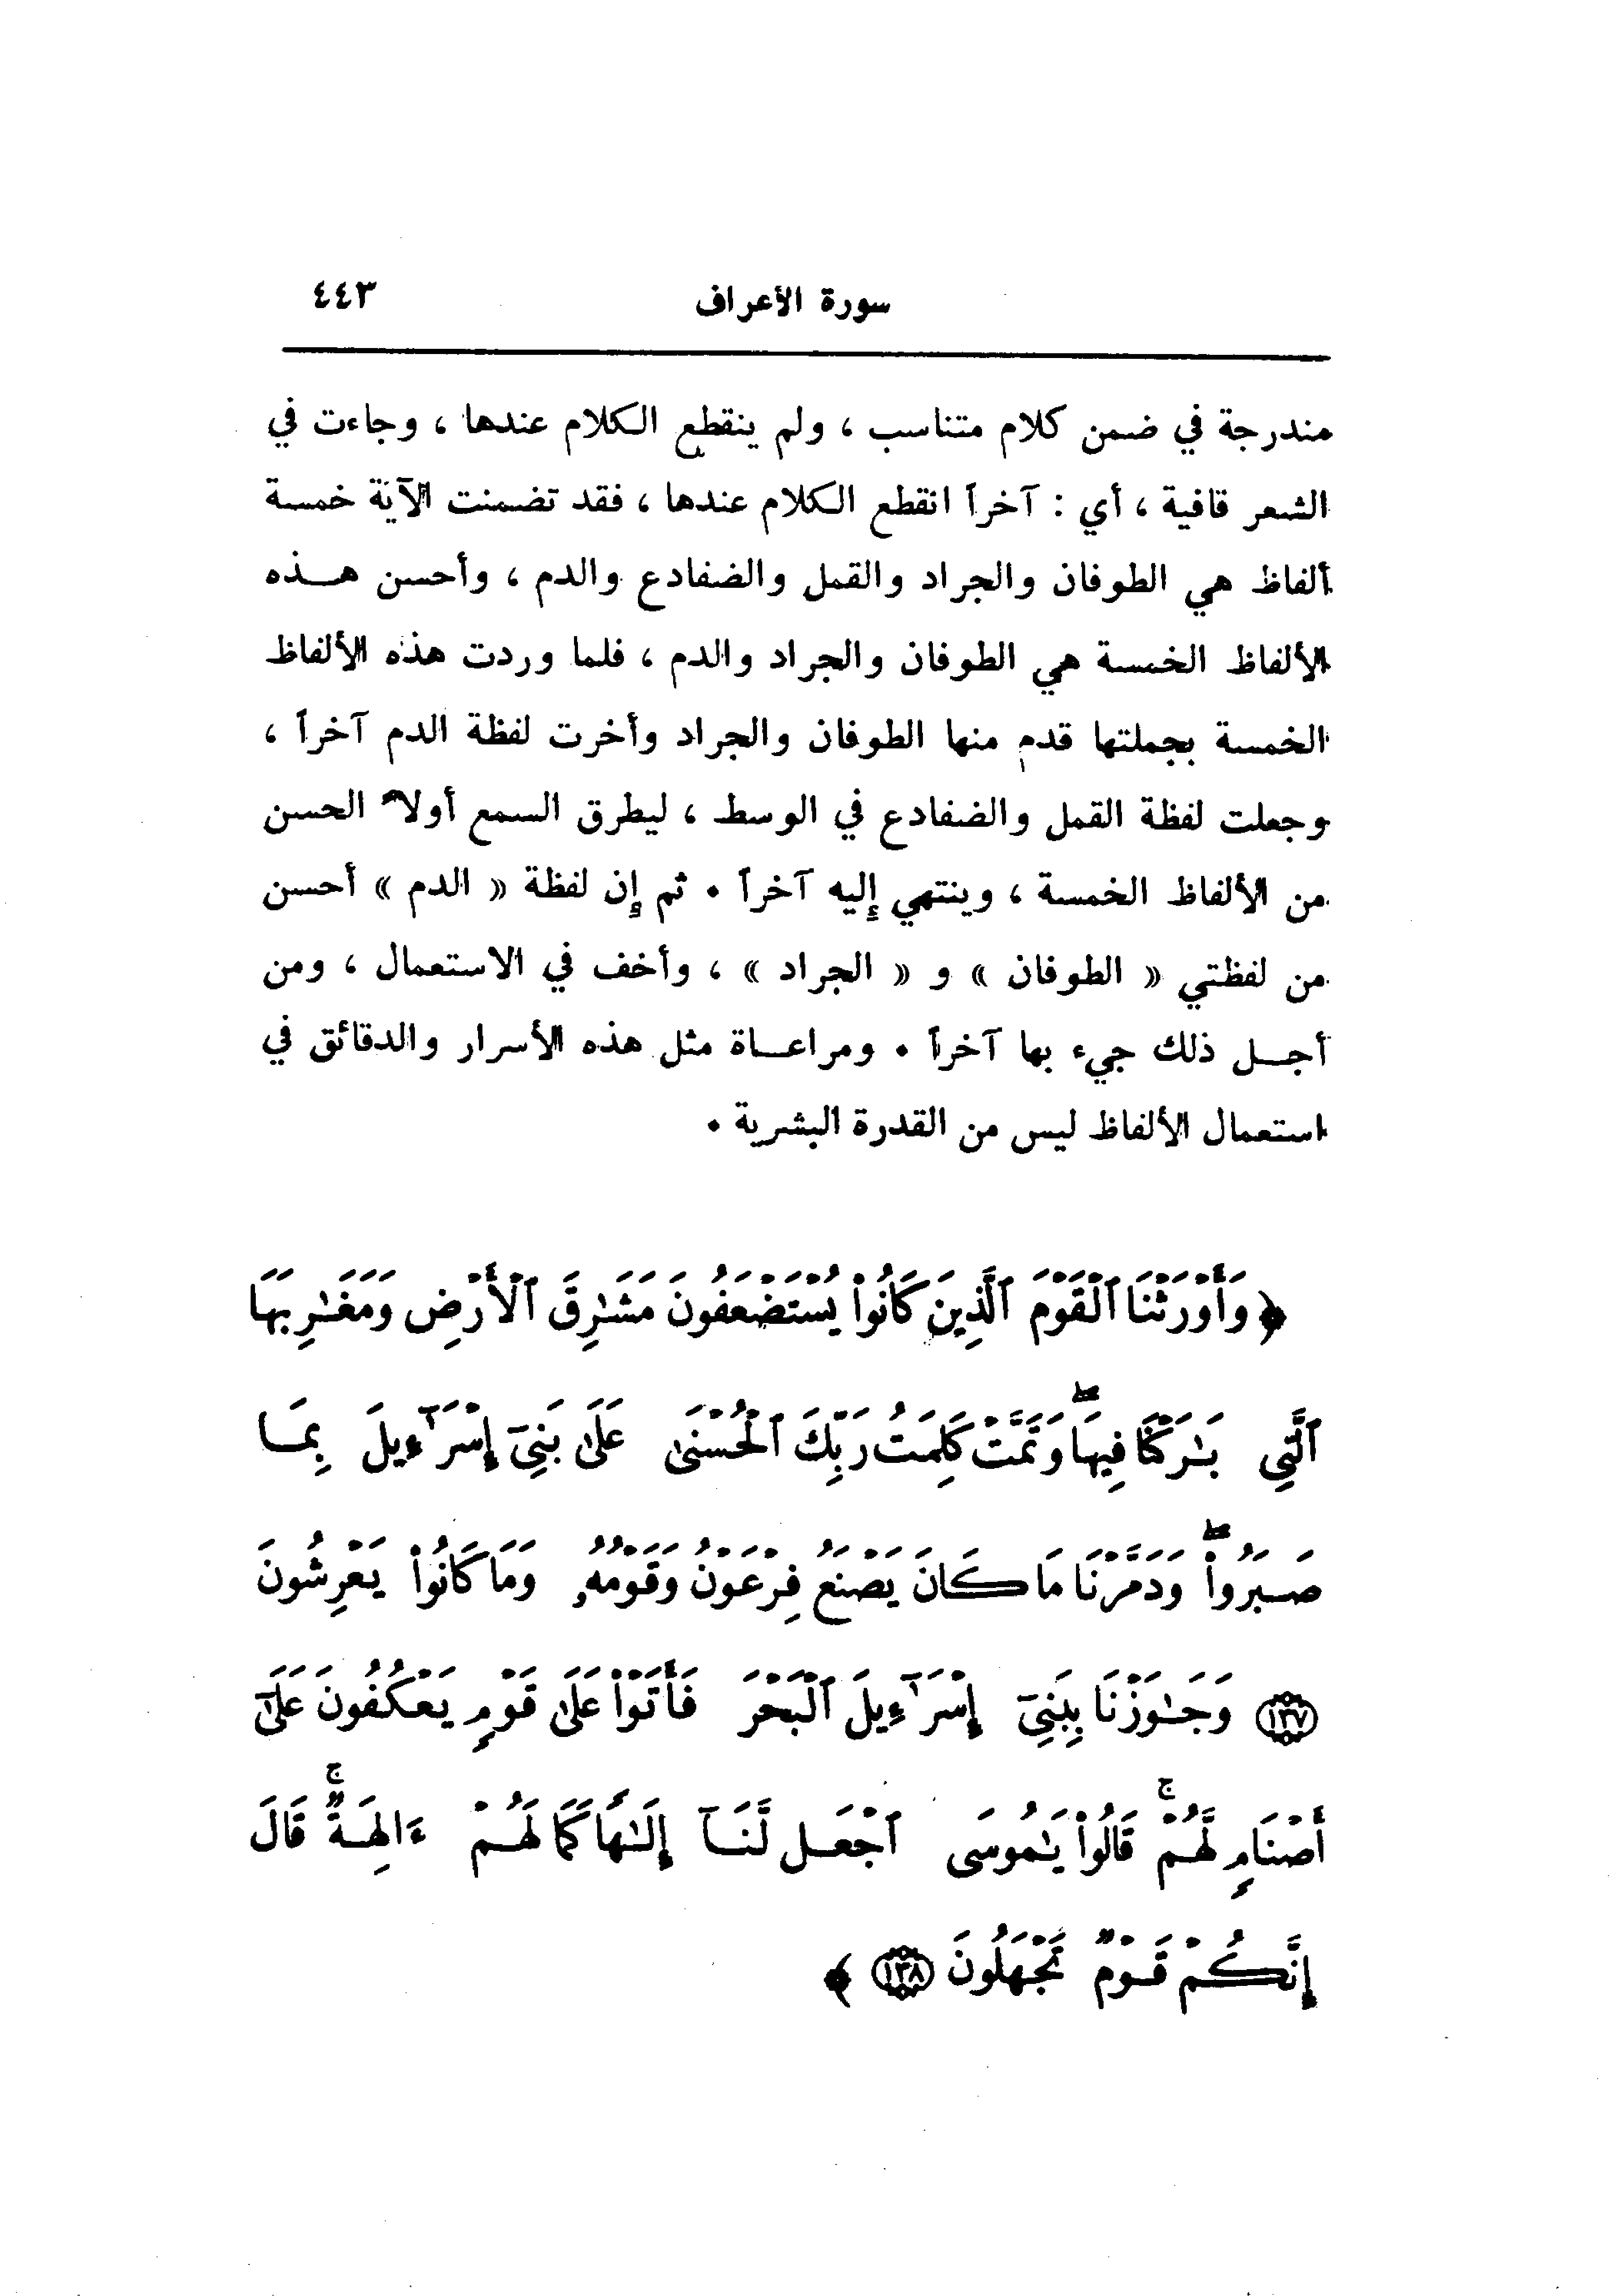 سورة الأعراف ٤٤٣
مندرجة في ضمن كلام متناسب ، ولم ينقطع الكلام عندها ، وجاءت في
الشعر قافية ، أي : آخراً انقطع الكلام عندها ، فقد تضمنت الآية خمسة
ألفاظ هي الطوفان والجراد والقمل والضفادع والدم ، وأحسن هــذه
الألفاظ الخمسة هي الطوفان والجراد والدم ، فلما وردت هذه الألفاظ
الخمسة بجملتها قدم منها الطوفان والجراد وأخرت لفظة الدم آخراً ،
وجعلت لفظة القمل والضفادع في الوسط ، ليطرق السمع أولاً الحسن
من الألفاظ الخمسة ، وينتهي إليه آخراً ٠ ثم إن لفظة « الدم » أحسن
من لفظتي « الطوفان » و « الجراد » ، وأخف في الاستعمال ، ومن
أجــل ذلك جيء بها آخراً ٠ ومراعــاة مثل هذه الأسرار والدقائق في
استعمال الألفاظ ليس من القدرة البشرية ٠
﴿ وَأَوْرَثْنَا ٱلْقَوْمَ ٱلَّذِينَ كَانُوا۟ يُسْتَضْعَفُونَ مَشَـٰرِقَ ٱلْأَرْضِ وَمَغَـٰرِبَهَا
ٱلَّتِى بَـٰرَكْنَا فِيهَاۖ وَتَمَّتْ كَلِمَتُ رَبِّكَ ٱلْحُسْنَىٰ عَلَىٰ بَنِىٓ إِسْرَٰٓءِيلَ بِمَا
صَبَرُوا۟ۖ وَدَمَّرْنَا مَا كَانَ يَصْنَعُ فِرْعَوْنُ وَقَوْمُهُۥ وَمَا كَانُوا۟ يَعْرِشُونَ
١٣٧ وَجَـٰوَزْنَا بِبَنِىٓ إِسْرَٰٓءِيلَ ٱلْبَحْرَ فَأَتَوْا۟ عَلَىٰ قَوْمٍ يَعْكُفُونَ عَلَىٰٓ
أَصْنَامٍ لَّهُمْۚ قَالُوا۟ يَـٰمُوسَى ٱجْعَل لَّنَآ إِلَـٰهًا كَمَا لَهُمْ ءَالِهَةٌۚ قَالَ
إِنَّكُمْ قَوْمٌ تَجْهَلُونَ ١٣٨ ﴾